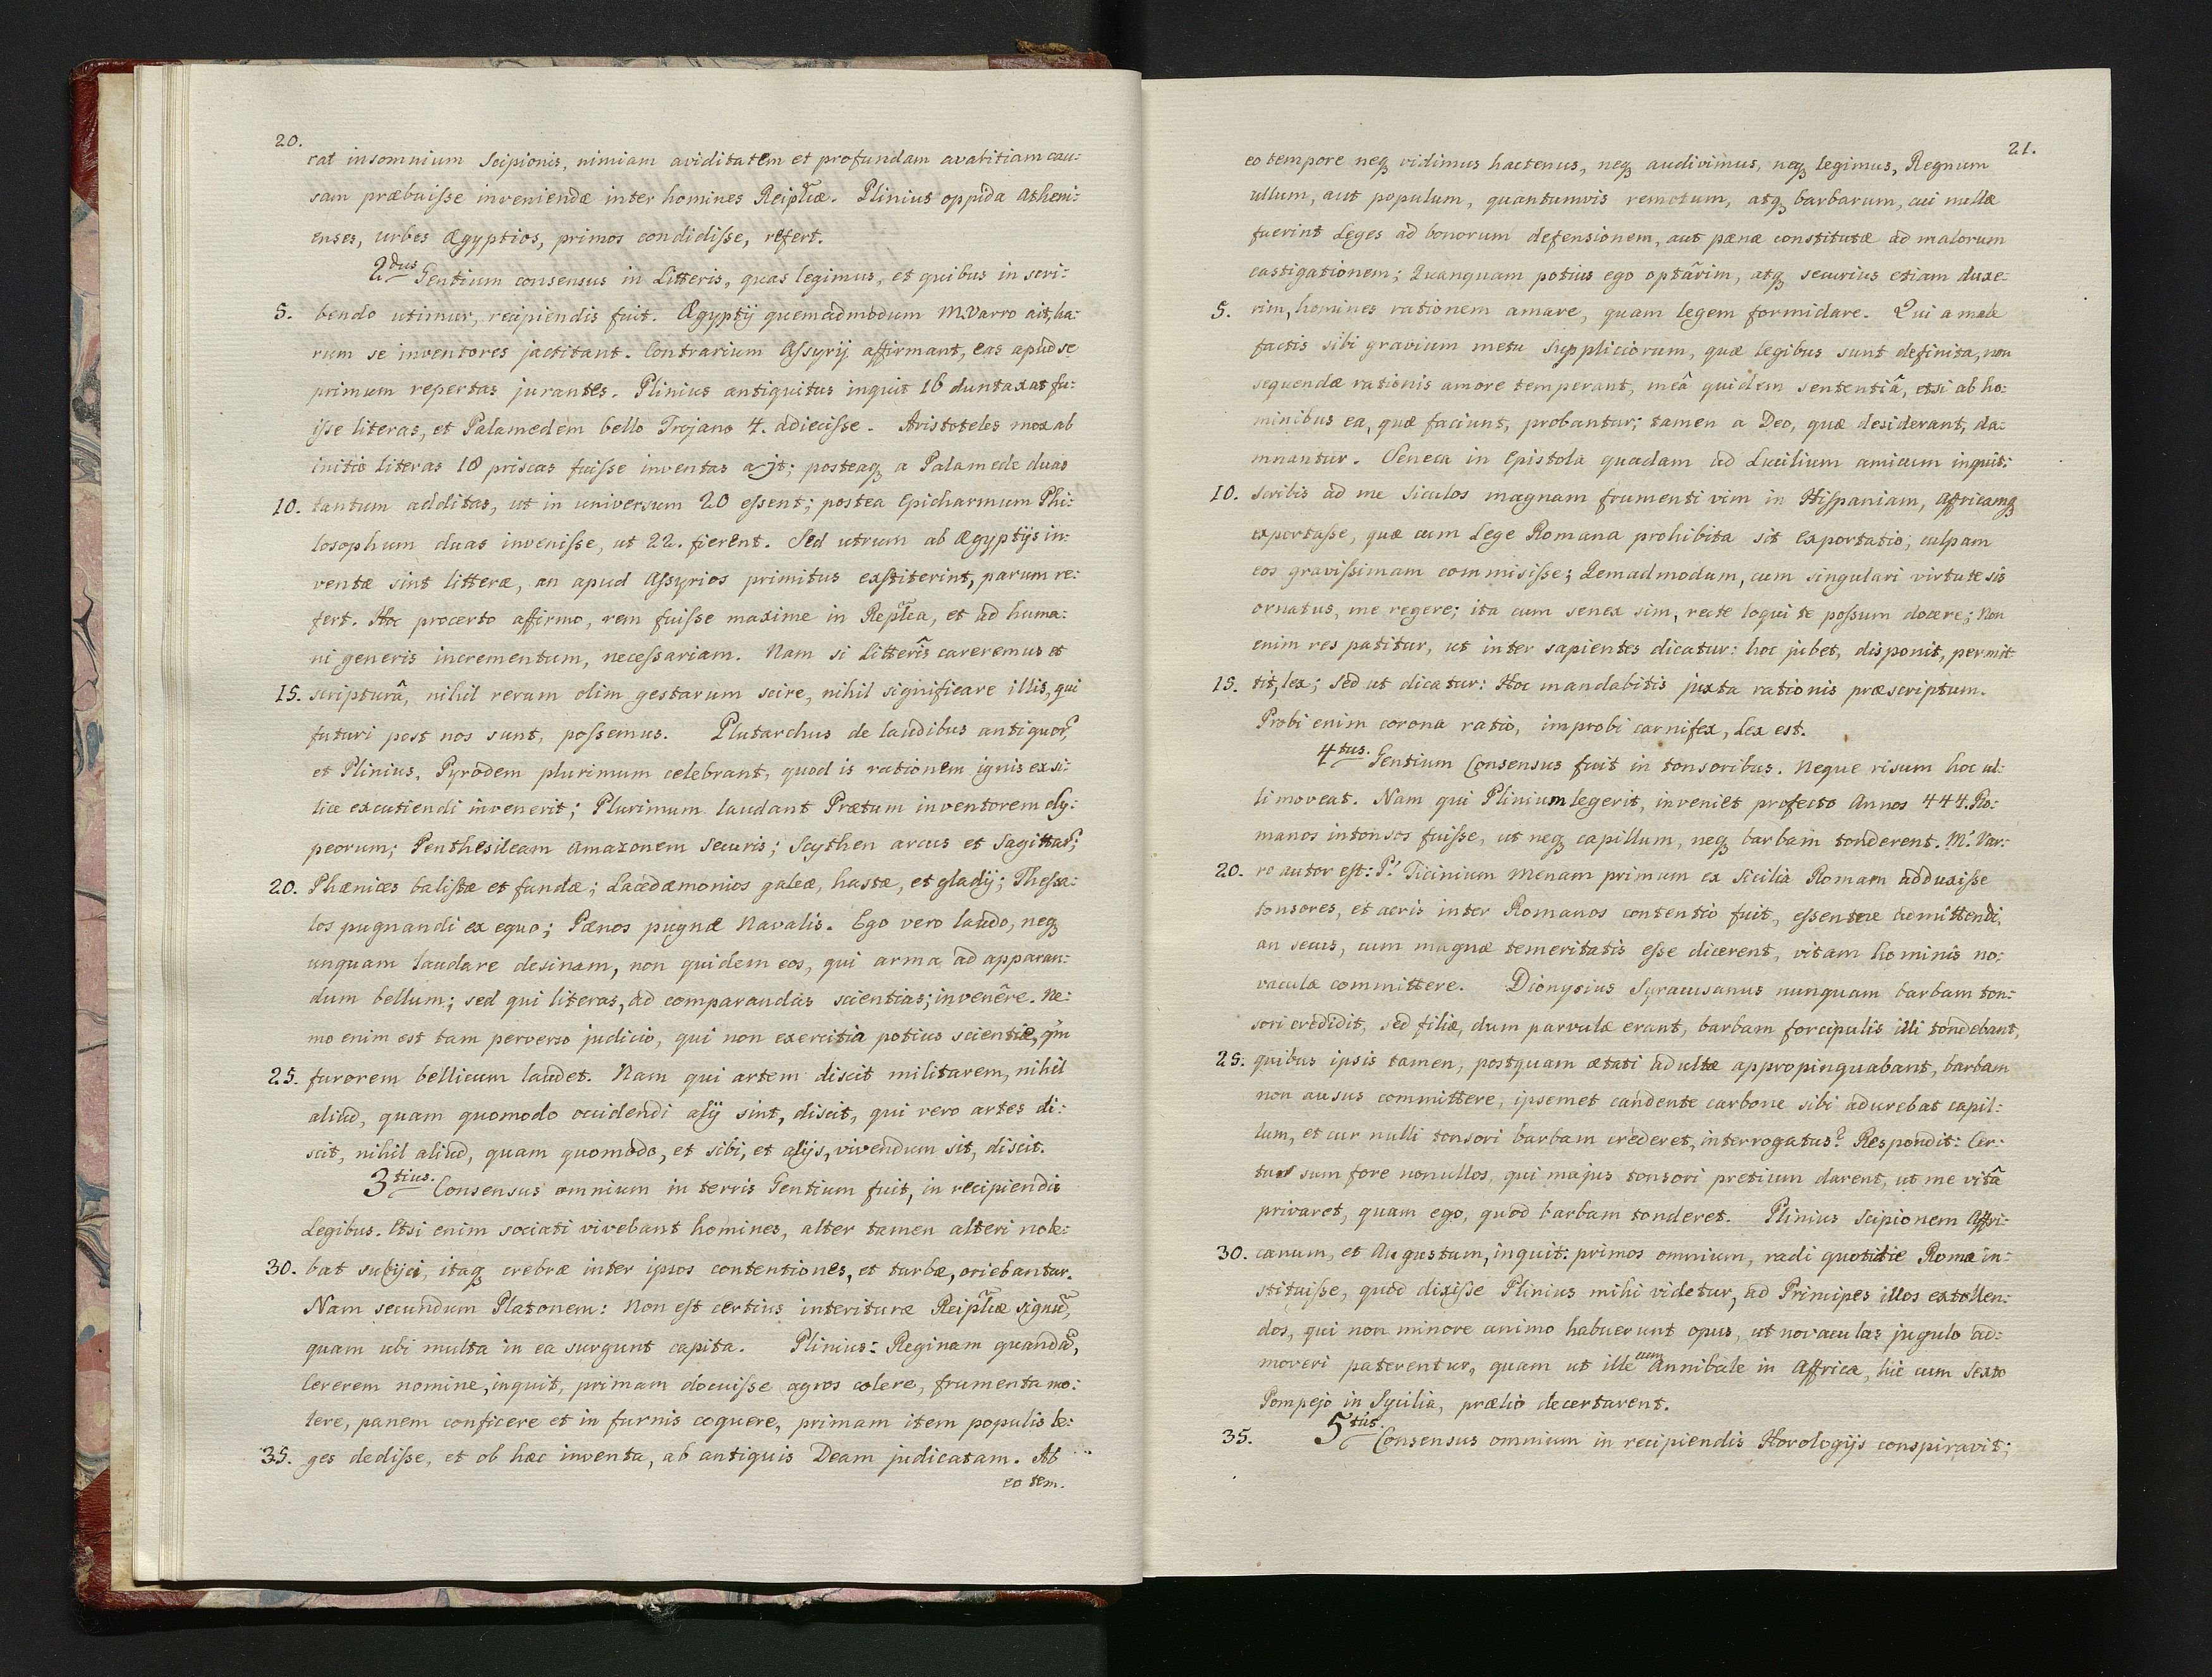 20.
rat in somnium Scipionis, nimiam aviditatem et profundam avaritiam cau:
sam præbuiſse inveniendæ inter homines Reiplc̃æ. Plinius oppida Atheni:
enses, urbes Ægyptios, primos condidiſse, refert.
2dus Gentium consensus in Litteris, quas legimus, et quibus in scri:
5. bendo utimur, recipiendis fuit. Ægyptij quemadmodum M. Varro ait, ha:
rum se inventores jactitant. Contrarium Aſsyrij affirmant, eas apud se
primum repertas jurantes. Plinius antiquitus inquit 16 duntaxat fu:
iſse literas, et Palamedem bello Trojano 4. adieciſse. Aristoteles mox ab
initio literas 18 priscas fuiſse inventas ajt; posteaq̨ a Palamede duas
10. tantum additas, ut in universum 20 eſsent; postea Epicharmum Phi:
losophum duas inveniſse, ut 22. fierent. Sed utrum ab Ægyptijs in:
ventæ sint litteræ, an apud Aſsyrios primitus exſtiterint, parum re:
fert. Hoc procerto affirmo, rem fuiſse maxime in Replc̃a, et ad huma:
ni generis incrementum, neceſsariam. Nam si Litterîs careremus et
15. scripturâ, nihil rerum olim gestarum scire, nihil significare illis, qui
futuri post nos sunt, poſsemus. Plutarchus de laudibus antiquor̃,
et Plinius, Pyrodem plurimum celebrant, quod is rationem ignis ex si:
lice excutiendi invenerit; Plurimum laudant Prætum inventorem cly:
peorum; Penthesileam Amazonem Securis; Scythen arcus et Sagittar̃;
20. Phænices balistæ et fundæ; Lacedæmonios galeæ, hastæ, et gladij; Theſsa:
los pugnandi ex equo; Pænos pugnæ Navalis. Ego vero laudo, neq̨
unquam laudare desinam, non quidem eos, qui arma ad apparan:
dum bellum; sed qui literas, ad comparandas scientias; invenêre. Ne:
mo enim est tam perverso judicio, qui non exercitia potius scientiæ, qm̃
25. furorem bellicum laudet. Nam qui artem discit militarem, nihil
aliud, quam quomodo occidendi alÿ sint, discit, qui vero artes di:
scit, nihil aliud, quam quomodo, et sibi, et alÿs, vivendum sit, discit.
3tius. Consensus omnium in terris Gentium fuit, in recipiendis
Legibus. Etsi enim sociati vivebant homines, alter tamen alteri nole:
30. bat subÿci, itaq̨ crebræ inter ipsos contentiones, et turbæ, oriebantur.
Nam secundum Platonem: Non eſt certius interituræ Reiplc̃æ signũ,
quam ubi multa in ea surgunt capita. Plinius: Reginam quandã,
Cererem nomine, inquit, primam docuiſse agros colere, frumenta mo:
lere, panem conficere et in furnis coquere, primam item populis le:
35. ges dediſse, et ob hæc inventa, ab antiquis Deam judicatam. Ab
eo tem.
21.
eo tempore neq̨ vidimus hactenus, neq̨ audivimus, neq̨ legimus, Regnum
ullum, aut populum, quantumvis remotum, atq̨ barbarum, cui nullæ
fuerint Leges ad bonorum defensionem, aut pænæ constitutæ ad malorum
castigationem; Quanquam potius ego optârim, atq̨ securius etiam duxe:
5. rim, homines rationem amare, quam legem formidare. Qui a male
factis sibi gravium metu suppliciorum, quæ legibus sunt definita, non
sequendæ rationis amore temperant, meâ quidem sententiâ, etsi ab ho:
minibus ea, quæ faciunt, probantur; tamen a Deo, quæ desiderant, da:
mnantur. Seneca in Epistola quadam ad Lucilium amicum inquit:
10. Scribis ad me Siculos magnam frumenti vim in Hiſpaniam, Affricamq̨
exportaſse, quæ cum Lege Romana prohibita sit exportatio, culpam
eos graviſsimam commisiſse; Qemadmodum, cum singulari virtute sis
ornatus, me regere; ita cum senex sim, recte loqui te poſsum docere; Non
enim res patitur, ut inter sapientes dicatur: hoc jubet, disponit, permit:
15. tit, lex; Sed ut dicatur: Hoc mandabitis juxta rationis præscriptum.
Probi enim corona ratio, improbi carnifex, Lex est.
4tus. Gentium Consensus fuit in tonsoribus. Neque risum hoc ul:
li moveat. Nam qui Plinium legerit, inveniet profecto Annos 444. Ro:
manos intonsos fuiſse, ut neq̨ capillum, neq̨ barbam tonderent. M. Var:
20. ro autor eſt: P. Ticinium Menam primum ex Sicilia Romam adduxiſse
tonsores, et acris inter Romanos contentio fuit, eſsentne admittendi,
an secus, cum magnæ temeritatis eſse dicerent, vitam hominis no:
vaculæ committere. Dionysius Syracusanus nunquam barbam ton:
sori credidit, sed filiæ, dum parvulæ erant, barbam forcipulis illi tondebant,
25. quibus ipsis tamen, postquam ætati adultæ appropinquabant, barbam
non ausus committere, ipsemet candente carbone sibi adurebat capil:
lum, et cur nulli tonsori barbam crederet, interrogatus? Respondit: Cer:
tus sum fore nonullos, qui majus tonsori pretium darent, ut me vitâ
privaret, quam ego, quod barbam tonderet. Plinius Scipionem Affri:
30. canum, et Augustum, inquit: primos omnium, radi quotidie Romæ in:
stituiſse, quod dixiſse Plinius mihi videtur, ad Principes illos extollen:
dos, qui non minore animo habuerunt opus, ut novaculas jugulo ad:
moveri paterentur, quam ut ille cum Annibale in Affrica, hic cum Sexto
Pompejo in Sycilia, prælio decertarent.
35. 5tus. Consensus omnium in recipiendis Horologijs conspiravit;